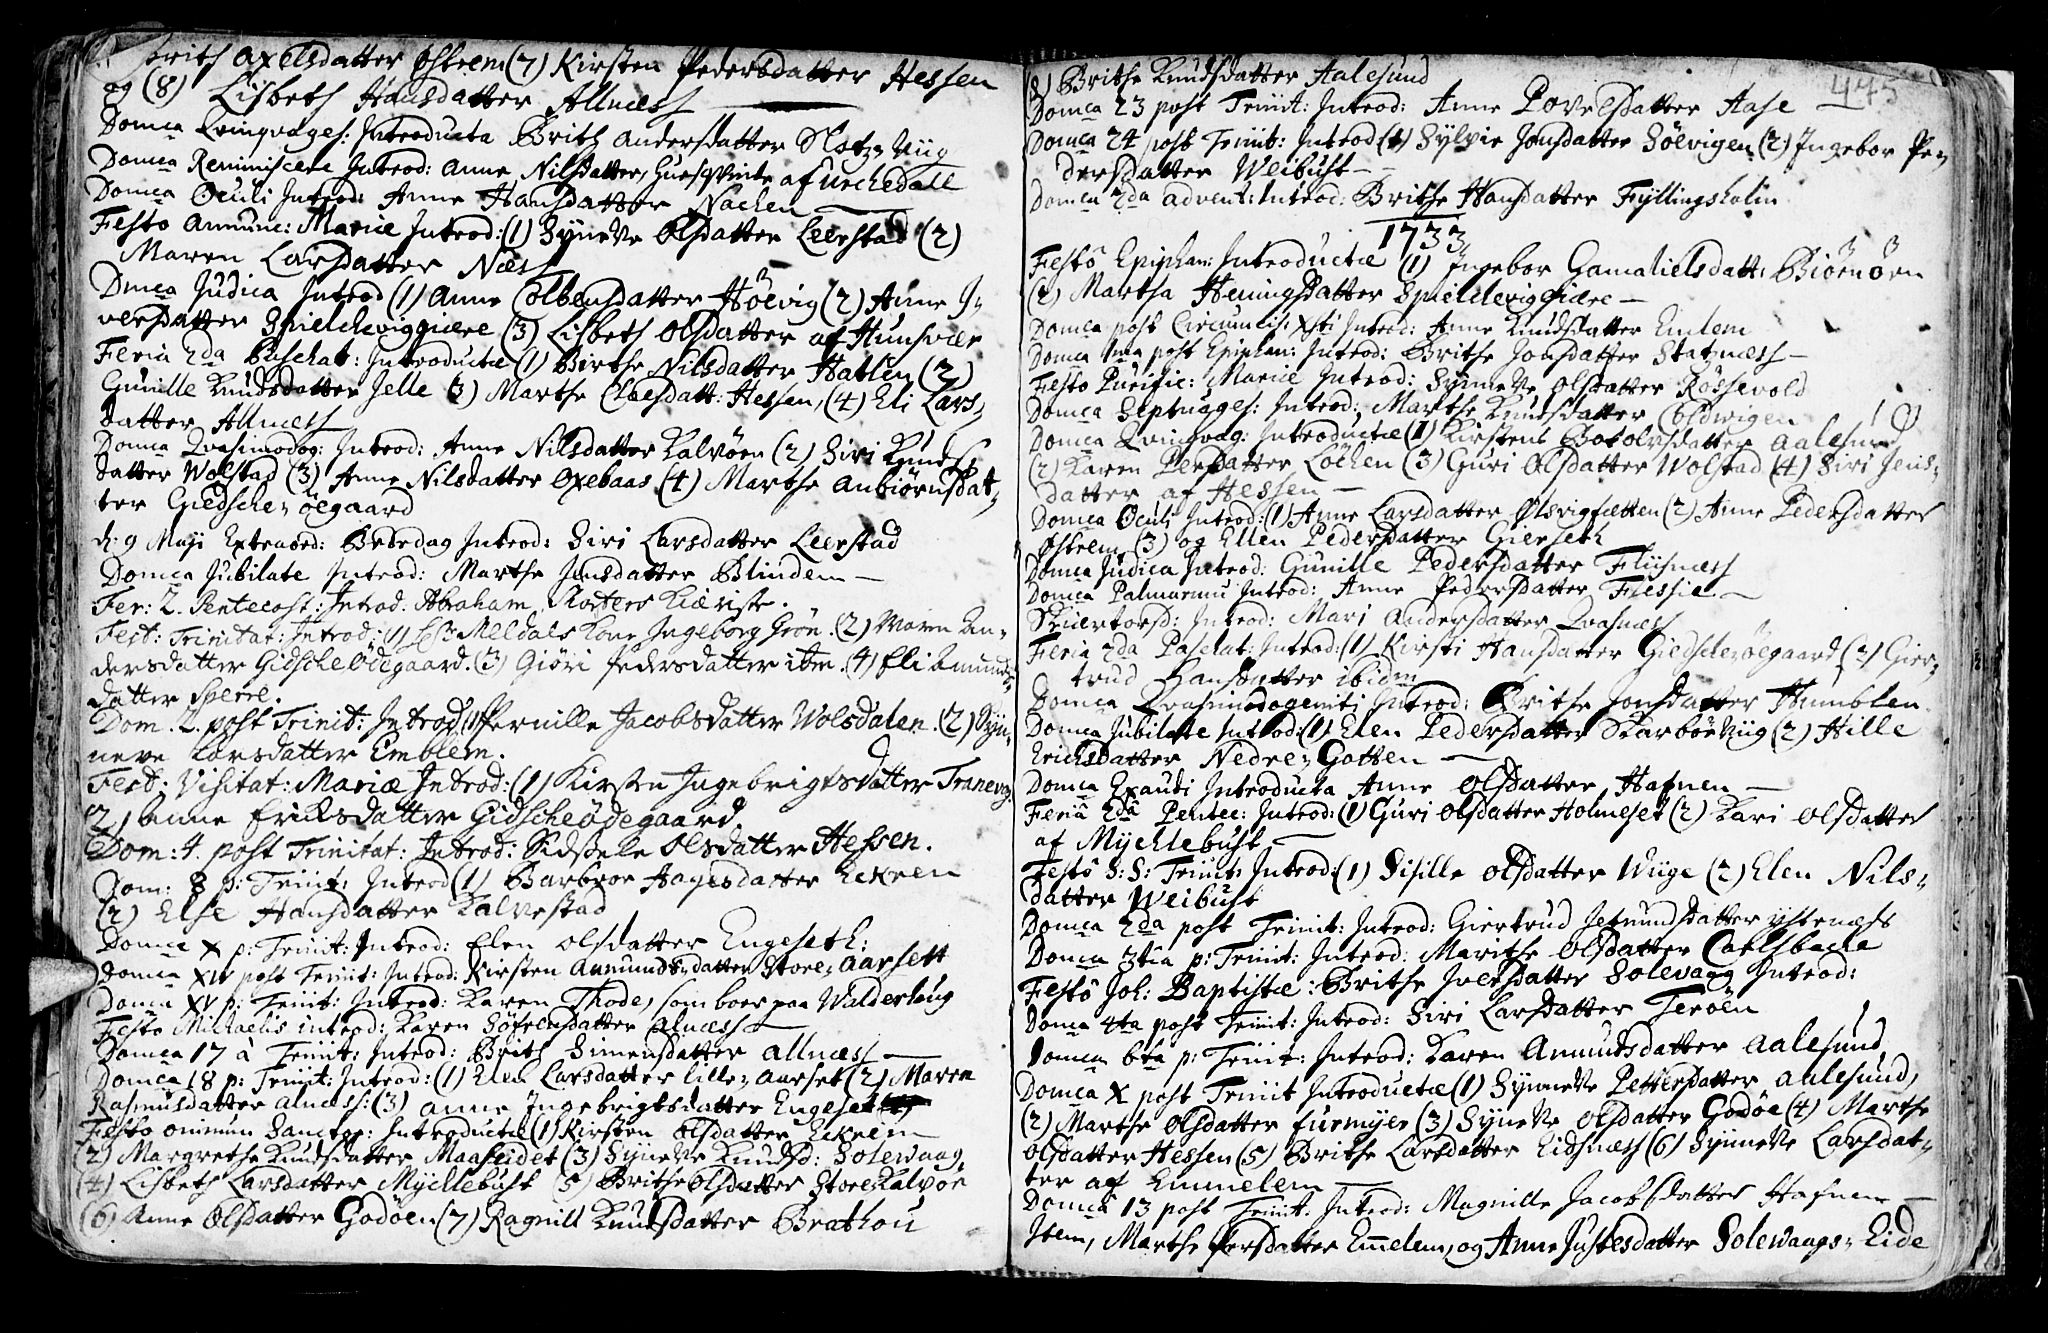 Brith Axelsdatter Østrem (7) Kirsten Pedersdatter Hessen
og (8) Lisbeth Hansdatter Allnæss
Domca Qvinqvages: Introducta Brith Andersdatter Slotz-Viig
Domca Reminiscere Introd: Anne Nilsdatter, Huusqvinde af
Domca Oculi Introd: Anne Hansdatter Nachen
Festo Annunc: Mariæ Introd: (1) Synneve Olsdatter Leerstad (2)
Maren Larsdatter Næss
Dmca Judica Introd (1) Anne Colbensdatter Höevig (2) Anne I-
versdatter Spieldeviggiære (3) Lisbeth Olsdatter af Hunsvær
Feria 2da Paschat: Introductæ (1) Birthe Nilsdatter Hatlen (2)
Gunille Knudsdatter Jelle (3) Marthe Claesdatt: Hessen, (4) Eli Lars-
datter Allnæss
Domca Qvasimodog: Introd: Anne Nilsdatter Kalvöen (2) Siri Knuds
datter Wolstad (3) Anne Nilsdatter Oxebaas (4) Marthe Anbiörnsdat-
ter Giedsche-Öegaard
d: 9 Maji Extraord: Bededag Introd: Siri Larsdatter Leerstad
Domca Jubilate Introd: Marthe Jensdatter Blindem
Fer: 2. Pentecost: Introd: Abraham Kiæriste.
Fest: Trinitat: Introd: (1) Meldals Kone Ingeborg Grön. (2) Maren An-
dersdatter Gidscheödegaard. (3) Giöri Pedersdatter ibm. (4) Eli Amunds
datter Sperre.
Dom. 2. post Trinit: Introd (1) Pernille Jacobsdatter Wolsdalen. (2) Syn-
neve Larsdatter Emblem.
Fest: Visitat: Mariæ Introd: (1) Kirsten Ingebrigtsdatter Tranevog.
2) Anne Ericksdatter Gidscheödegaard
Dom: 4. post Trinitat: Introd: Sidsele Olsdatter Hessen.
Dom: 8 p: Trinit: Introd (1) Barbroe Hagesdatter Eckren
(2) Else Hansdatter Kalvestad
Domca X p: Trinit: Introd: Elen Olsdatter Engeseth:
Domca XIV post Trinit: Introd: Kirsten Anmundsdatter Store-Aarsett
Domca XV p: Trinit: Introd: Karen Thode, som boer paa Walderhoug
Festo Michaelis introd: Karen Söfrensdatter Alnæss
Domca 17 à Trinit: Introd: Brith Simensdatter Allnæss
Domca 18 p: Trinit: Introd: (1) Elen Larsdatter lille-Aarset (2) Maren
Rasmusdatter Alnæss: (3) Anne Ingebrigtsdatter Engeset
Festo omnium Sanctor: Introductæ (1) Kirsten Olsdatter Eckrein
(2) Margrethe Knudsdatter Maaseidet (3) Synneve Knudsd: Solevaag,
(4) Lisbeth Larsdatter Myclebust (5) Brithe Olsdatter Store Kalvöe
(6) Anne Olsdatter Godöen (7) Ragnill Knudsdatter Brathou
8) Brithe Knudsdatter Aalesund
475
Domca 23 post Trinit: Introd: Anne Povelsdatter Aase
Domca 24 post Trinit: Introd (1) Sylvie Jonsdatter Söevigen (2) Ingebor Pe-
dersdatter Weibust
Domca 2da Advent: Introd: Brithe Hansdatter Fyllingsholm
1733
Festô Epiphan: Introductæ (1) Ingebor Gamalielsdatt: Biörnöen
(2) Martha Henningsdatter Spieldeviggiære
Domca post Circumcis: Xsti Introd: Anne Knudsdatter Emlem
Domca 1ma post Epiphan: Introd: Brithe Jonsdatter Statznæss
Festo Purific: Mariæ Introd: Synneve Olsdatter Rössevold
Domca Septuages: Introd: Marthe Knudsdatter
Domca Qvinqvag: Introductæ (1) Kirsten Botolvsdatter Aalesund
(2) Karen Persdatter Löchen (3) Guri Olsdatter Wolstad (4) Siri Jens-
datter af Hessen
Domca Oculi Introd: (1) Anne Larsdatter Olsvigfætten (2) Anne Pedersdatter
Østrem (3) og Ellen Pedersdatter Gierseth
Domca Judica Introd: Gunille Pedersdatter Fliisnæss
Domca Palmarum Introd: Anne Pedersdatter Flessie
Skiertorsd: Introd: Mari Andersdatter Qvasnæss
Feria 2da Paschat: Introd: (1) Kirsti Hansdatter Giedsche-Öegaard (2) Gier-
trud Hansdatter ibidm
Domca Qvasimodogeniti Introd: Brithe Jonsdatter Humblen
Domca Jubilate Introd: (1) Elen Pedersdatter Skarbövüig (2) Hille
Ericksdatter Nedre-Gotten
Domca Exaudi Introducta Anne Olsdatter Hafnen
Feriâ 2dâ Pentec: Introd: (1) Guri Olsdatter Holmeset (2) Kari Olsdatter
af Mychlebust
Festô S: S: Trinit: Introd: (1) Sisille Olsdatter Wiige (2) Elen Nils-
datter Weibust
Domca 2da post Trinit: Introd: Giertrud Jetmundsdatter Ystenæss
Domca 3tia p: Trinit: Introd: Marithe Olsdatter Carlsbacke
Festô Joh: Baptistæ: Brithe Iversdatter Solevaag Introd:
Domca 4ta post Trinit: Introd: Siri Larsdatter Teröen
Domca 6ta p: Trinit: Introd: Karen Anmundsdatter Aalesund
Domca X post Trinit Introductæ (1) Synneve Pettersdatter Aalesund,
(2) Marthe Olsdatter Furmyer (3) Synneve Olsdatter Godöe (4) Marthe
Olsdatter Hessen (5) Brithe Larsdatter Eidsnæss (6) Synneve Larsdat-
ter af Emmelem
Domca 13 post Trinit: Introd: Magnille Jacobsdatter Hafnen
Item, Marthe Persdatter Emelem, og Anne Justesdatter Solewaags-Eide